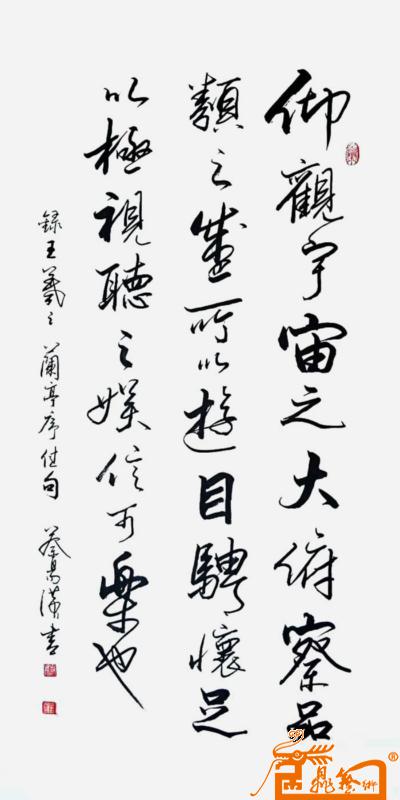 仰觀宇宙之大俯察品
類之盛所以遊目騁懷足
以極視聽之娛信可樂也
錄王羲之蘭亭序佳句 蔡漢書